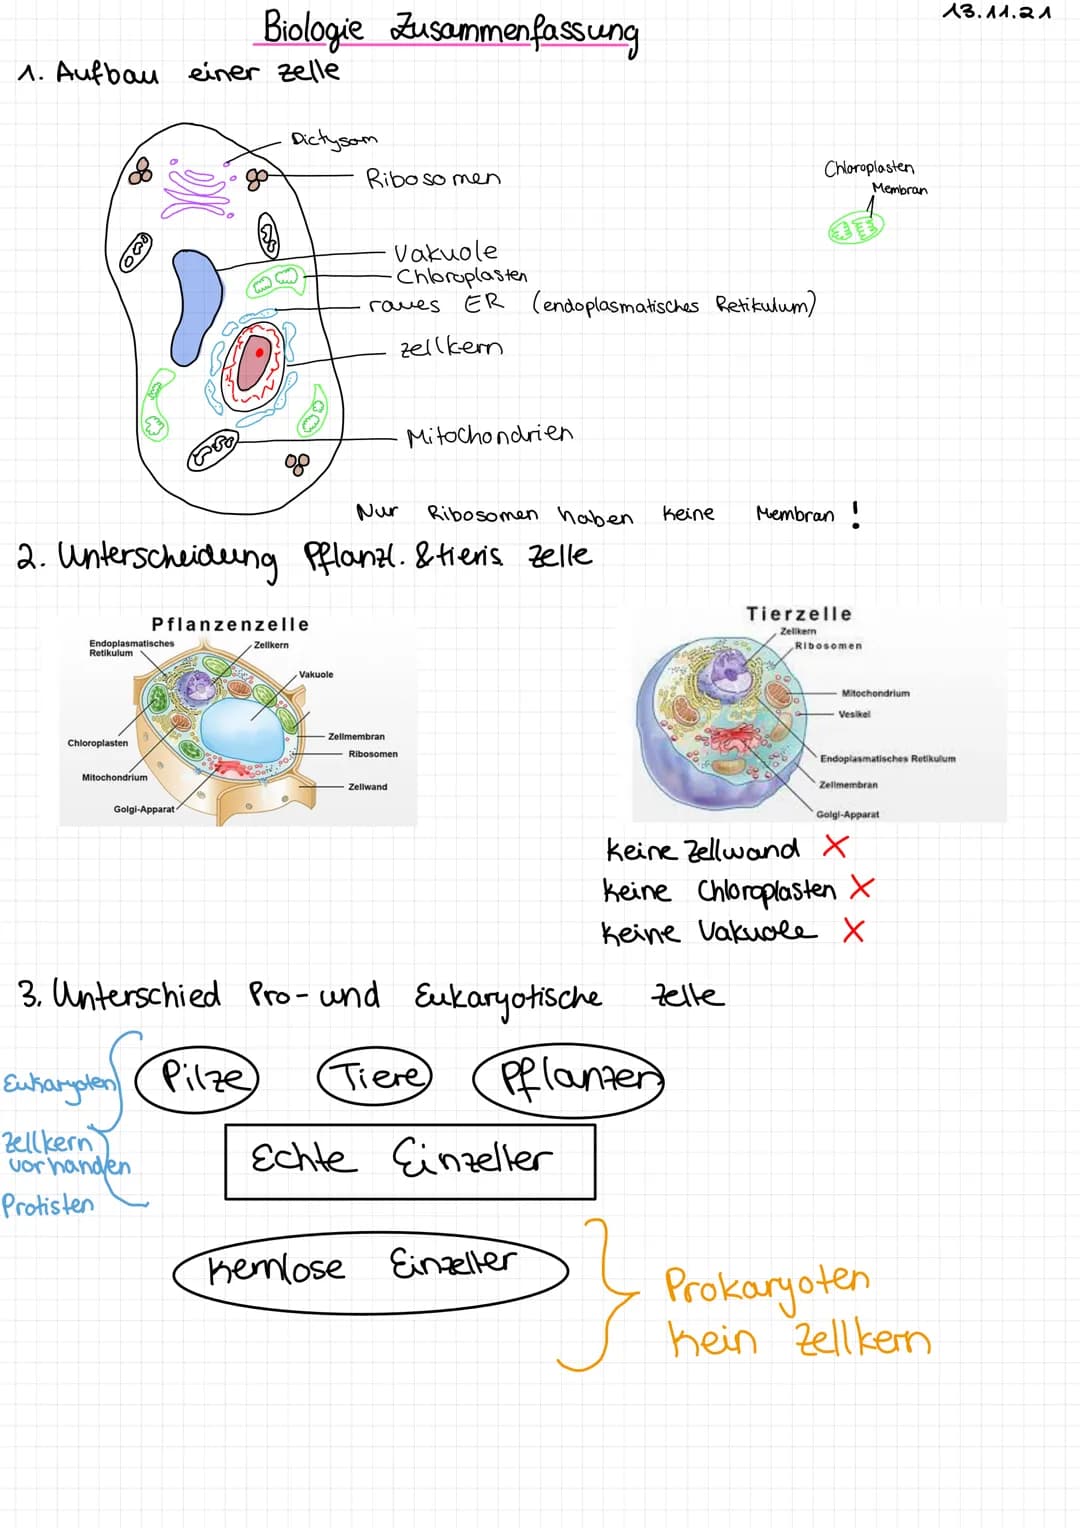 13.11.21
Biologie Zusammenfassung
1. Aufbau einer Zelle
Dictysom
Ribosomen
Chloroplasten
Membran
Vakuole
Chloroplasten
raues ER (endoplasmatisches Retikulum)
Zellkern
Mitochondrien
Nur Ribosomen haben keine Membran !
2. Unterscheidung Pflanzl. & tieris Zelle
Pflanzenzelle
Endoplasmatisches
Retikulum
Zellkern
Vakuole
Zellmembran
Chloroplasten
Ribosomen
Mitochondrium
Zellwand
Golgi-Apparat
Tierzelle
Zellkern
Ribosomen
Mitochondrium
Vesikel
Endoplasmatisches Retikulum
Zellmembran
Golgi-Apparat
keine Zellwand X
keine Chloroplasten X
keine Vakuole X
3. Unterschied Pro- und Eukaryotische Zelle
Eukaryoten
Pilze Tiere Pflanzen
Zellkern
vorhanden
Echte Einzeller
Protisten
Kernlose Einzeller
Prokaryoten
kein Zellkern